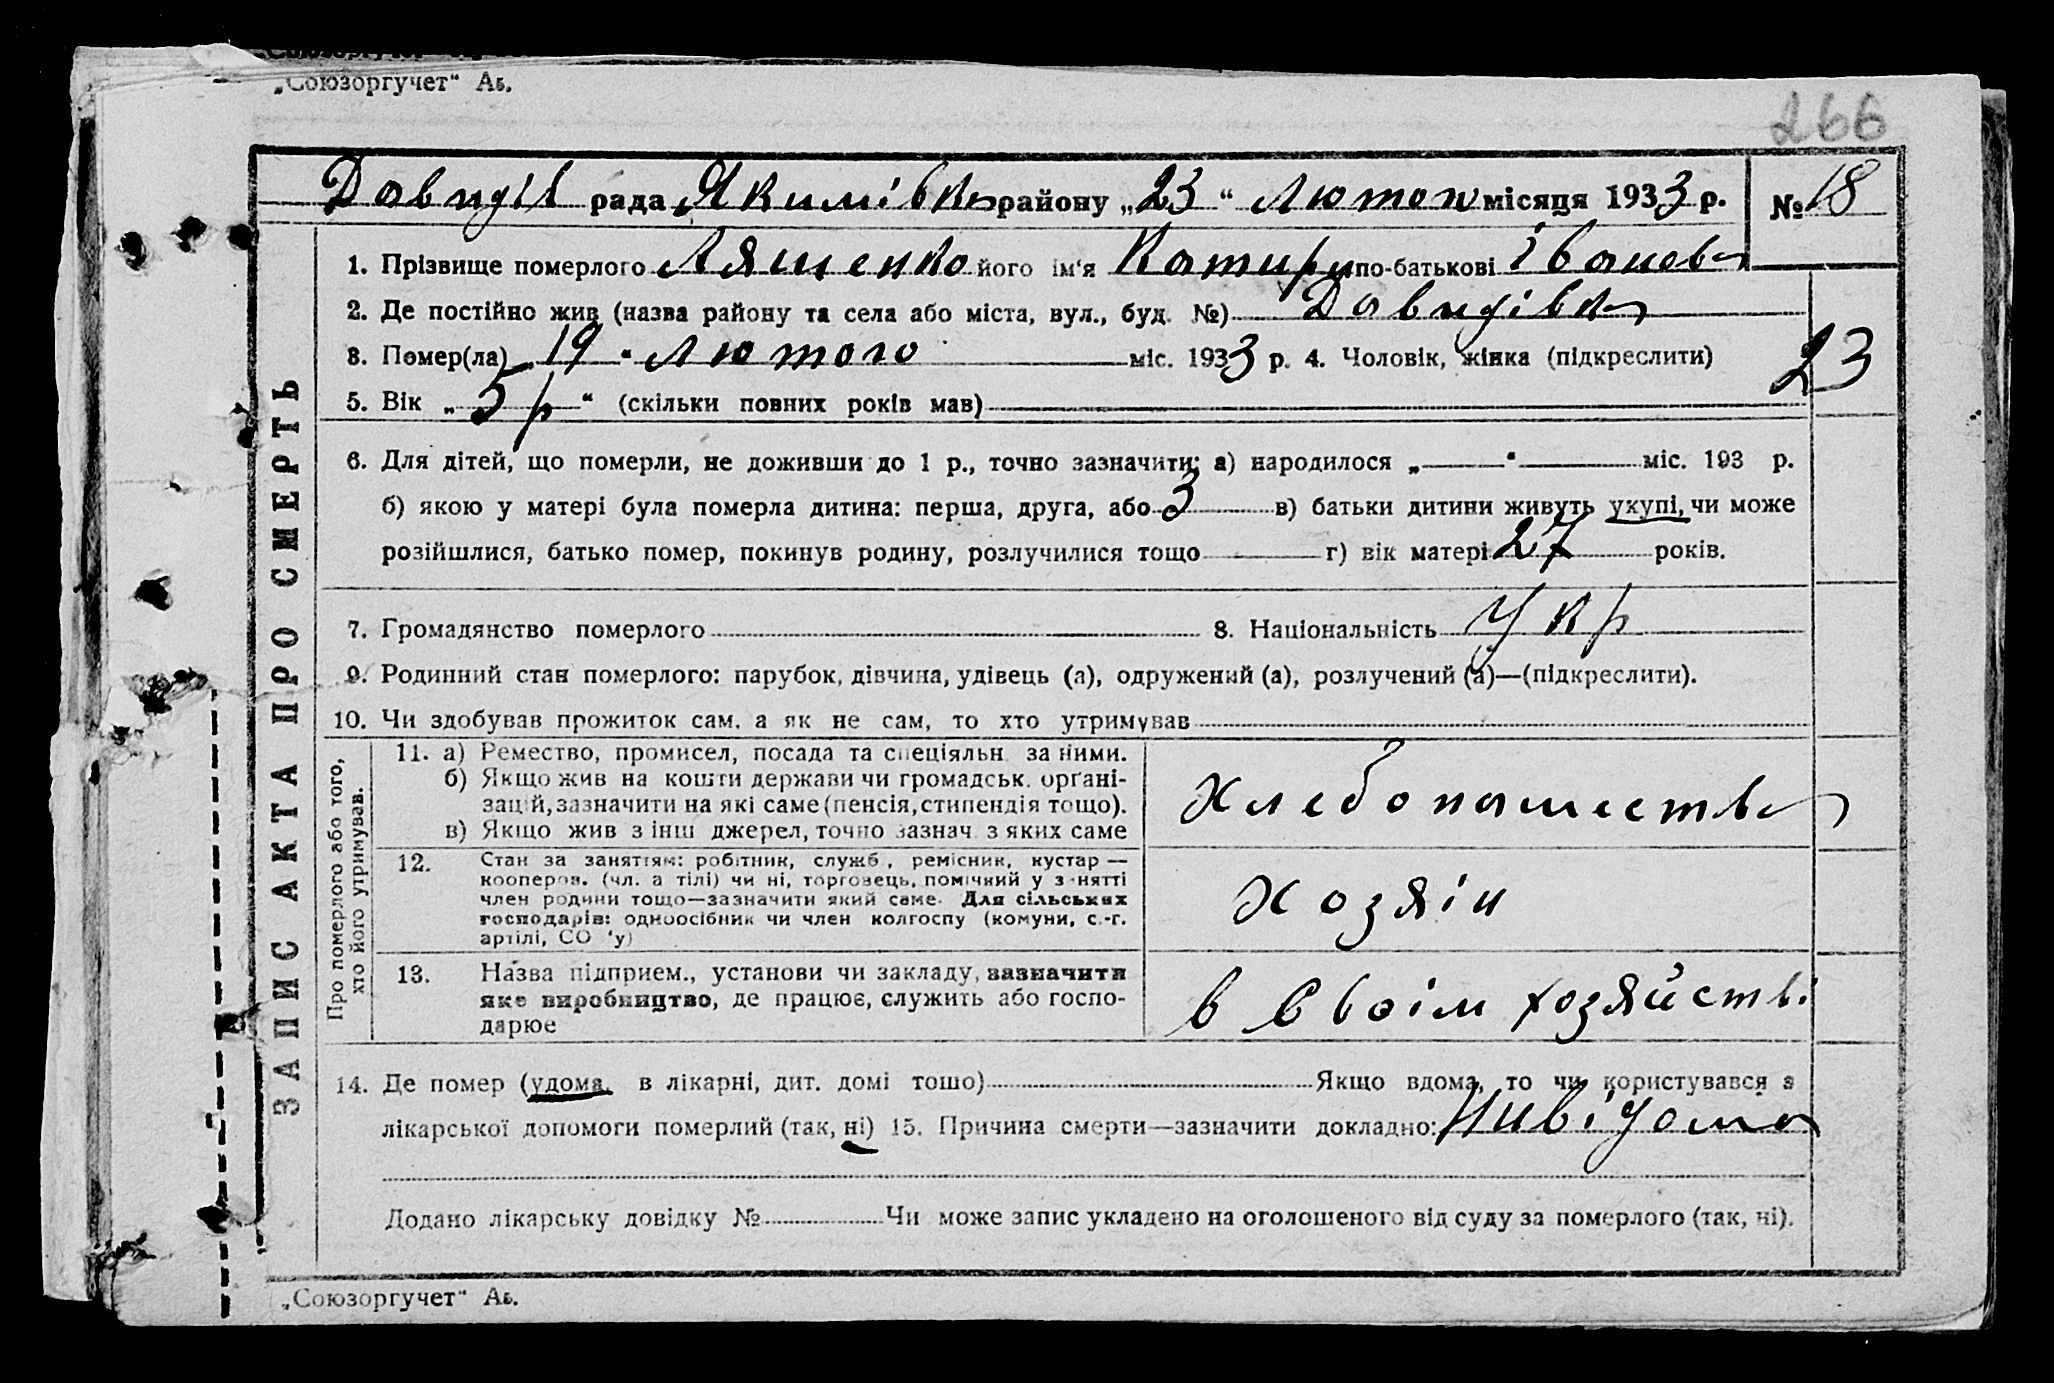 „Союзоргучет“ Ав.
266
Давидів рада Якимівка району „23“ Лютого місяця 1933 р. № 18
1. Прізвище померлого Ляшенко його ім‘я по-батькові Іванова
2. Де постійно жив (назва району та села або міста, вул., буд. №) Давидівка
3. Помер(ла) 19 „ Лютого міс. 1933 р. 4. Чоловік, жінка (підкреслити)
23
5. Вік „5 р“ (скільки повних років мав)
6. Для дітей, що померли, не доживши до 1 р., точно зазначити: а) народилося „ “ міс. 193 р.
б) якою у матері була померла дитина: перша, друга, або 3 в) батьки дитини живуть укупі, чи може
розійшлися, батько помер, покинув родину, розлучилися тощо г) вік матері 27 років.
7. Громадянство померлого 8. Національність Укр
9. Родинний стан померлого: парубок, дівчина, удівець (а), одружений (а), розлучений (а)—(підкреслити).
10. Чи здобував прожиток сам, а як не сам, то хто утримував
ЗАПИС АКТА ПРО СМЕРТЬ
Про померлого або того,
хто його утримував.
11. а) Ремество, промисел, посада та спеціяльн. за ними.
б) Якщо жив на кошти держави чи громадськ. органі-
зацій, зазначити на які саме (пенсія, стипендія тощо).
в) Якщо жив з інш джерел, точно зазнач. з яких саме
Хлебопашества
12. Стан за заняттям: робітник, служб., ремісник, кустар —
кооперов. (чл. артілі) чи ні, торговець, помічний у занятті
член родини тощо—зазначити який саме. Для сільських
господарів: одноосібник чи член колгоспу (комуни, с.-г.
артілі, СО ‘у)
Хозяін
13. Назва підприєм., установи чи закладу, зазначити
яке виробництво, де працює, служить або госпо-
дарює
в своім хозяйстві
14. Де помер (удома, в лікарні, дит. домі тошо) Якщо вдома, то чи користувався з
лікарської допомоги померлий (так, ні) 15. Причина смерти—зазначити докладно: Нивідома
Додано лікарську довідку № Чи може запис укладено на оголошеного від суду за померлого (так, ні).
„Союзоргучет“ Ав.